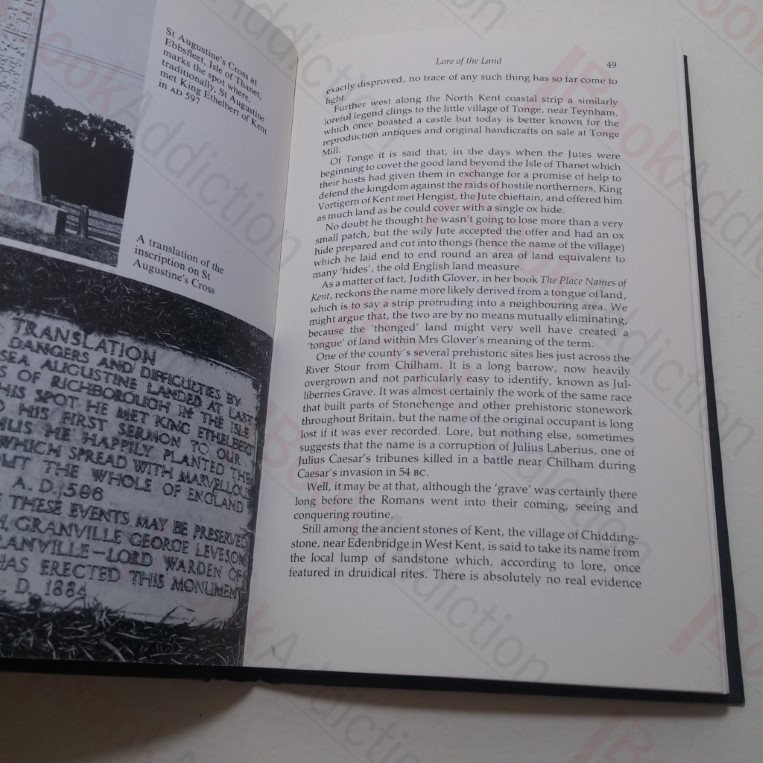 St Augustine's Cross at
Ebbsfleet, Isle of Thanet,
marks the spot where,
traditionally, St Augustine
met King Ethelbert of Kent
in AD 597
A translation of the
inscription on St
Augustine's Cross
TRANSLATION
DANGERS AND DIFFICULTIES BY
SEA AUGUSTINE LANDED AT LAST
OF RICHBOROUGH IN THE ISLE
HIS SPOT HE MET KING ETHELBERT
HIS FIRST SERMON TO OUR
HE HAPPILY PLANTED THE
WHICH SPREAD WITH MARVELLOUS
THE WHOLE OF ENGLAND
A. D. 596
THESE EVENTS MAY BE PRESERVED
GRANVILLE GEORGE LEVESON
LORD WARDEN OF
HAS ERECTED THIS MONUMENT
D. 1884
Lore of the Land
49
exactly disproved, no trace of any such thing has so far come to
light.
Further west along the North Kent coastal strip a similarly
loreful legend clings to the little village of Tonge, near Teynham,
which once boasted a castle but today is better known for the
reproduction antiques and original handicrafts on sale at Tonge
Mill.
Of Tonge it is said that, in the days when the Jutes were
beginning to covet the good land beyond the Isle of Thanet which
their hosts had given them in exchange for a promise of help to
defend the kingdom against the raids of hostile northerners, King
Vortigern of Kent met Hengist, the Jute chieftain, and offered him
as much land as he could cover with a single ox hide.
No doubt he thought he wasn't going to lose more than a very
small patch, but the wily Jute accepted the offer and had an ox
hide prepared and cut into thongs (hence the name of the village)
which he laid end to end round an area of land equivalent to
many 'hides', the old English land measure.
As a matter of fact, Judith Glover, in her book The Place Names of
Kent, reckons the name more likely derived from a tongue of land,
which is to say a strip protruding into a neighbouring area. We
might argue that, the two are by no means mutually eliminating,
because the 'thonged' land might very well have created a
'tongue' of land within Mrs Glover's meaning of the term.
One of the county's several prehistoric sites lies just across the
River Stour from Chilham. It is a long barrow, now heavily
overgrown and not particularly easy to identify, known as Jul-
liberries Grave. It was almost certainly the work of the same race
that built parts of Stonehenge and other prehistoric stonework
throughout Britain, but the name of the original occupant is long
lost if it was ever recorded. Lore, but nothing else, sometimes
suggests that the name is a corruption of Julius Laberius, one of
Julius Caesar's tribunes killed in a battle near Chilham during
Caesar's invasion in 54 BC.
Well, it may be at that, although the 'grave' was certainly there
long before the Romans went into their coming, seeing and
conquering routine.
Still among the ancient stones of Kent, the village of Chidding-
stone, near Edenbridge in West Kent, is said to take its name from
the local lump of sandstone which, according to lore, once
featured in druidical rites. There is absolutely no real evidence